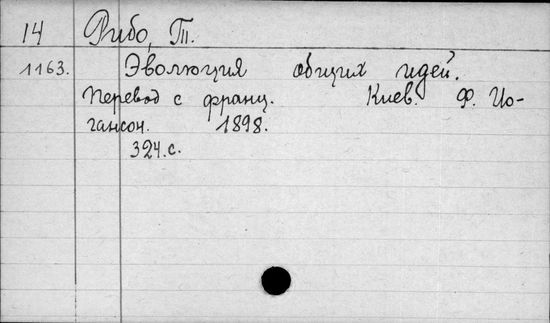 14 Рибо, Т.
1163. Эволюция общих идей.
Перевод с франц. Киев. Ф. Ио-
гансон. 1898.
324 с.